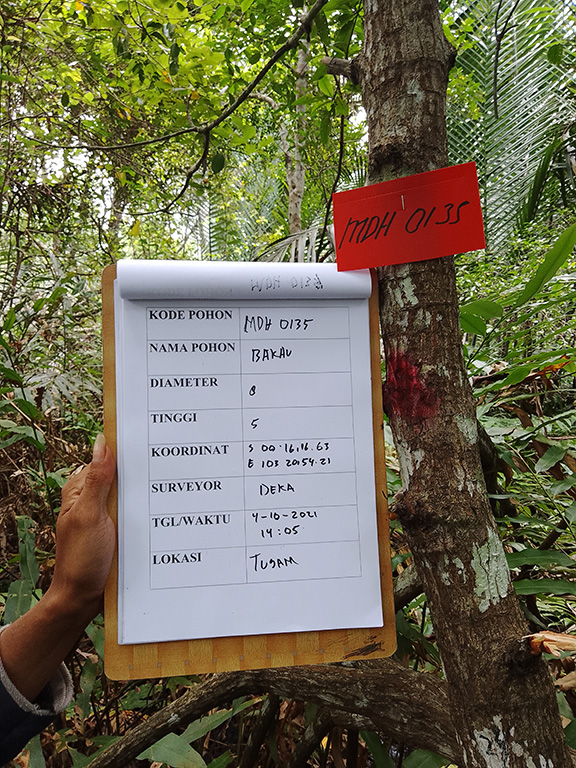 MDH 0135
KODE POHON MDH 0135
NAMA POHON BAKAU
DIAMETER 8
TINGGI 5
KOORDINAT S 00.16.16.63
E 103 20.54.21
SURVEYOR DEKA
TGL/WAKTU 4-10-2021
14:05
LOKASI